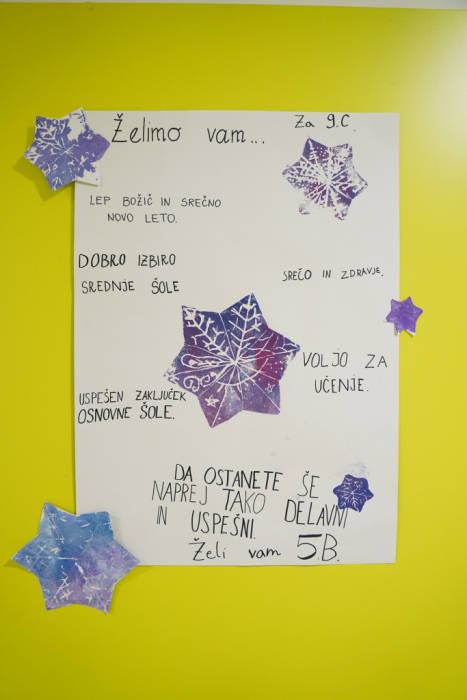 Želimo vam...
Za 9.C.
LEP BOŽIČ IN SREČNO
NOVO LETO.
DOBRO IZBIRO
SREDNJE ŠOLE
SREČO IN ZDRAVJE.
VOLJO ZA
UČENJE.
USPEŠEN ZAKLJUČEK
OSNOVNE ŠOLE.
DA OSTANETE ŠE
NAPREJ TAKO DELAVNI
IN USPEŠNI.
Želi vam 5.B.